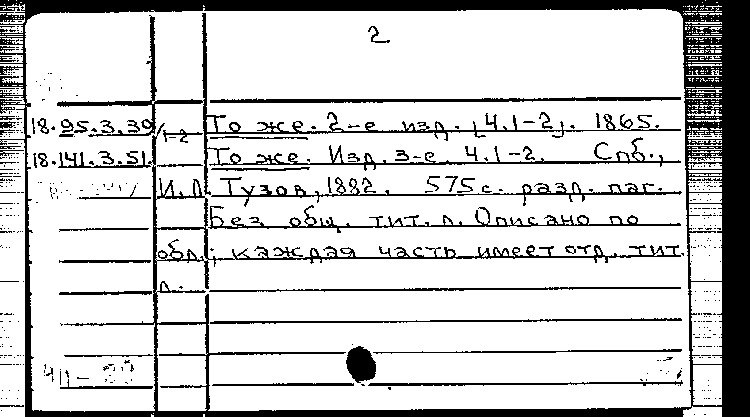 2
18.95.3.39/1-2 То же. 2-е изд. [Ч.1-2]. 1865.
18.141.3.51. То же. Изд. 3-е. Ч.1-2. Спб.,
И.Л. Тузов, 1882. 575с. разд. паг.
Без общ. тит. л. Описано по
обл.; каждая часть имеет отд. тит.
л.